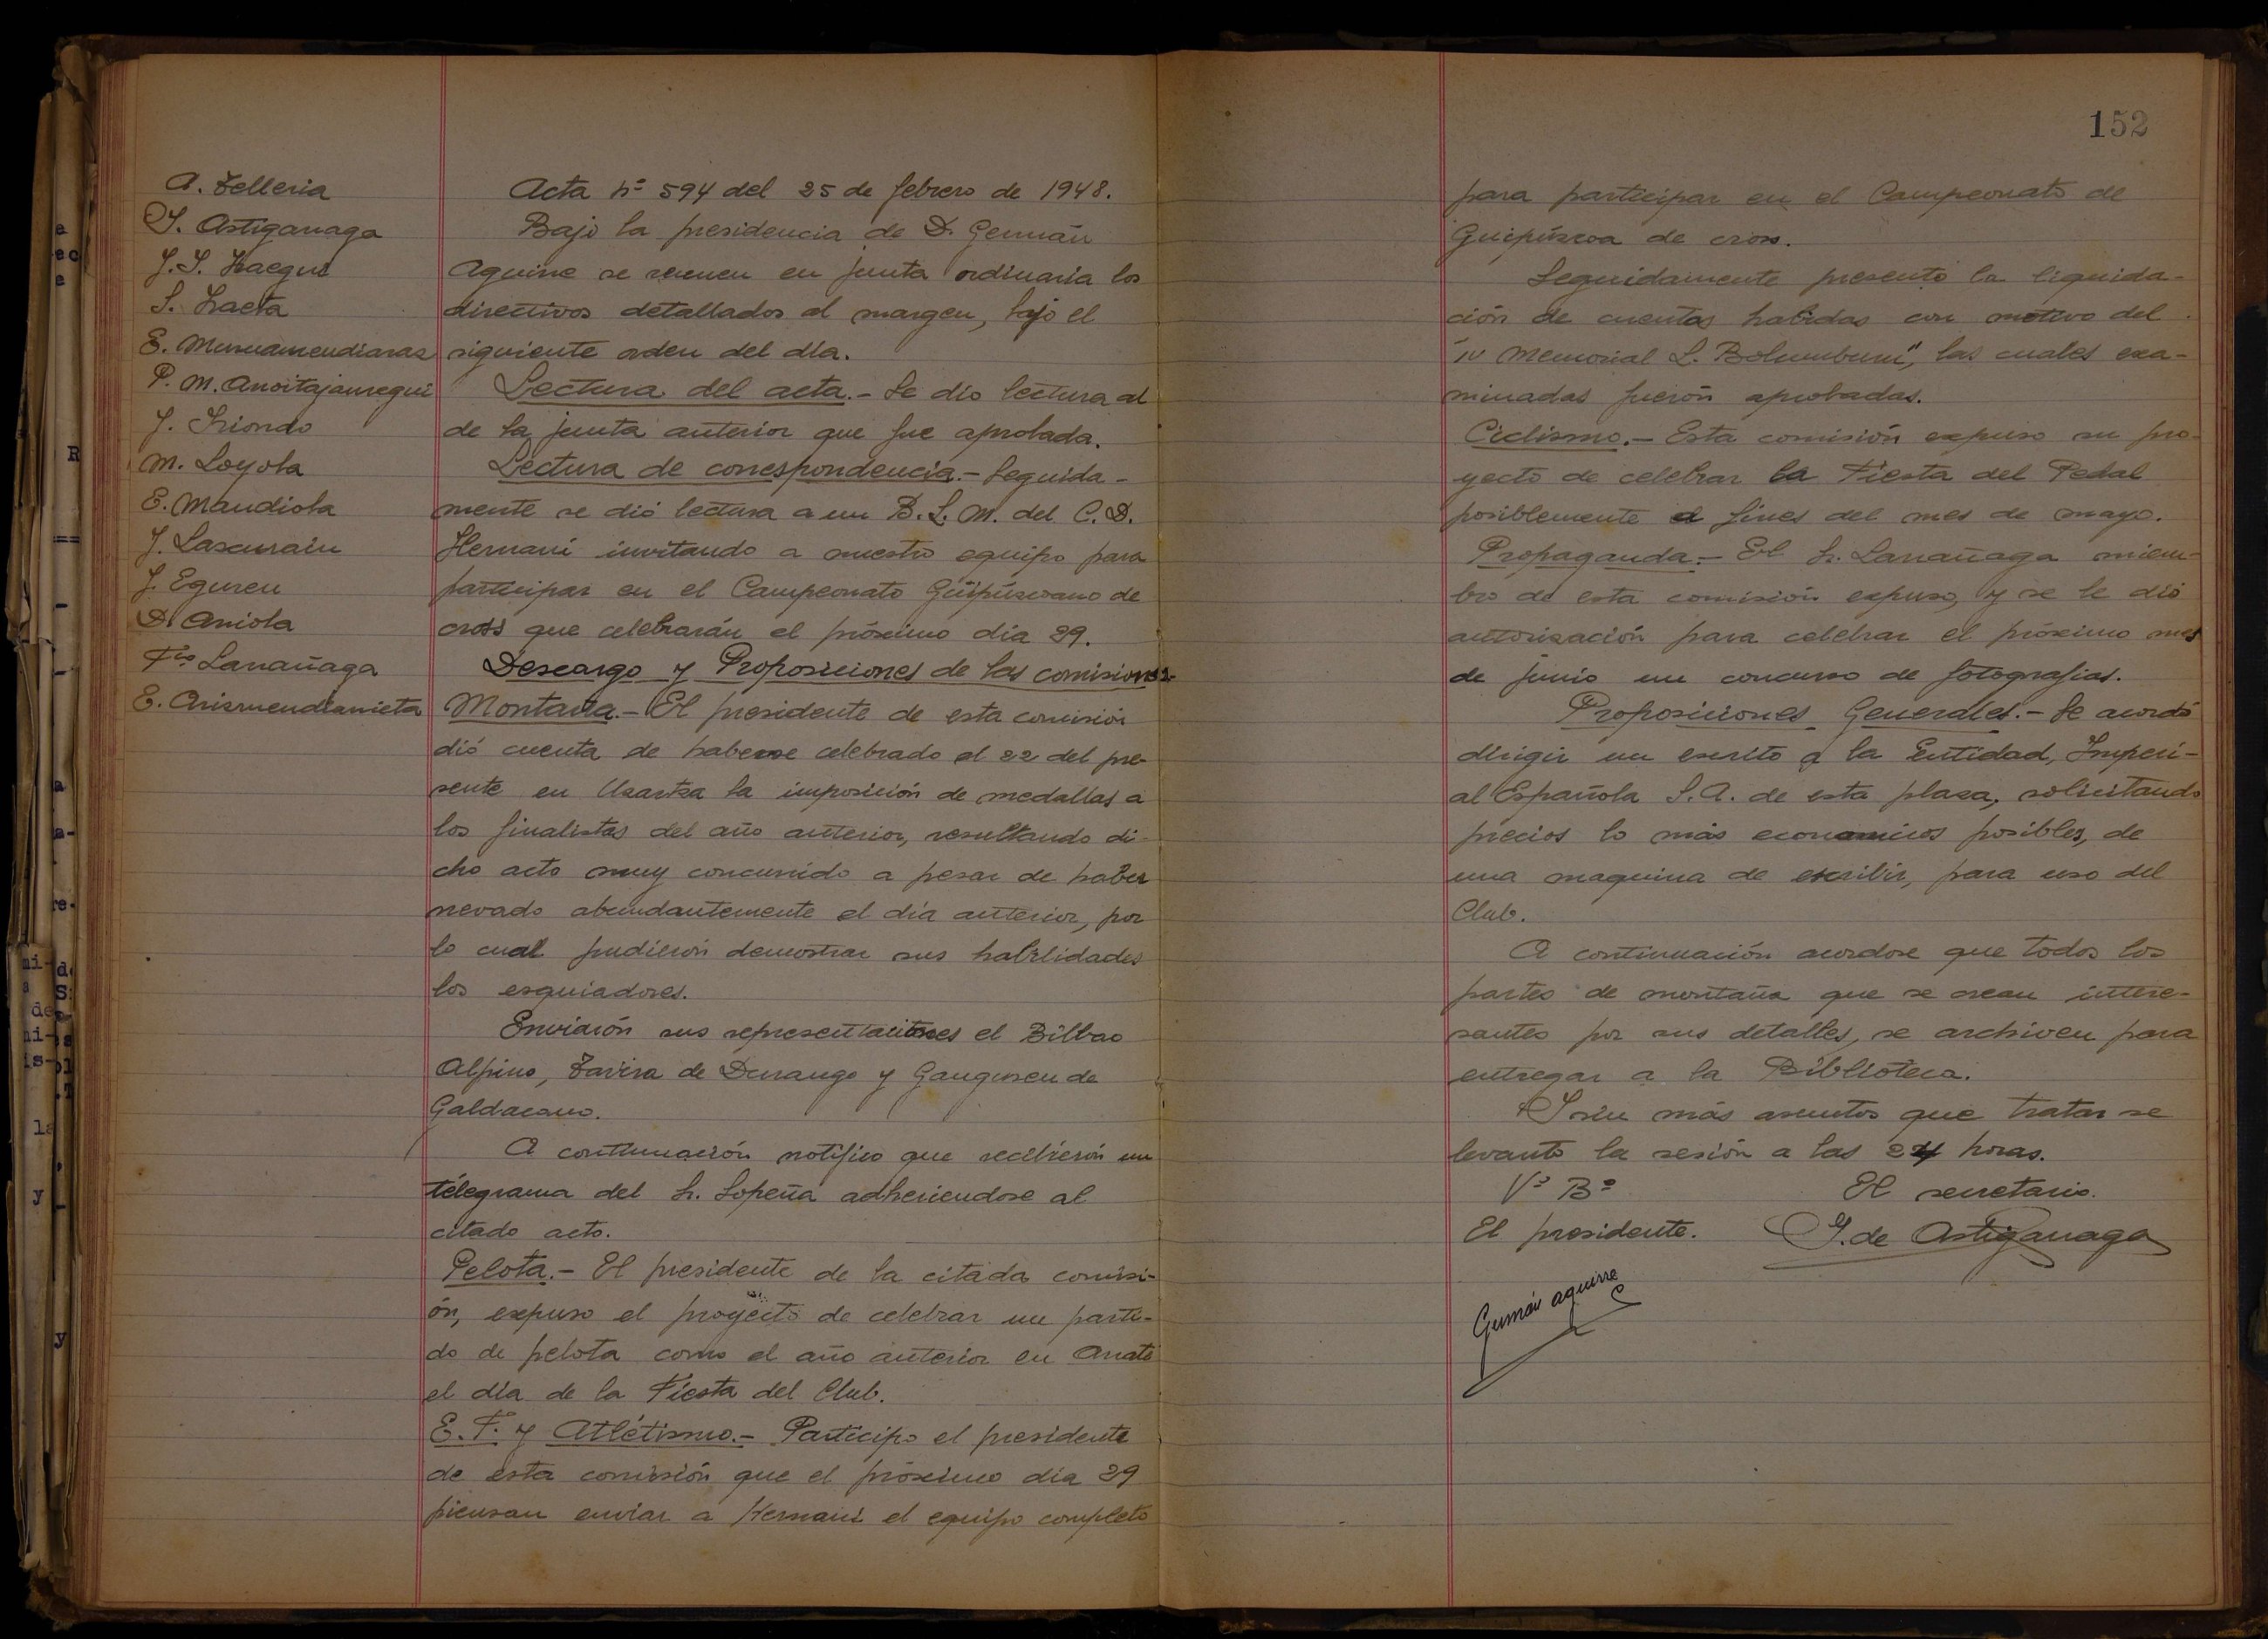 A. Telleria
Y. Astigarraga
J. I. Iraegui
S. Iraeta
E. Muruamendiaraz
P. M. Anoitajauregui
J. Iriondo
M. Loyola
E. Mandiola
J. Lascurain
J. Eguren
D. Arriola
Fco Larrañaga
E. Arismendiarrieta
Acta nº 594 del 25 de febrero de 1948.
Bajo la presidencia de D. Germán
Aguirre se reunen en junta ordinaria los
directivos detallados al margen, bajo el
siguiente orden del día.
Lectura del acta.- Se dio lectura al
de la junta anterior que fue aprobada.
Lectura de correspondencia.- Seguida-
mente se dió lectura a un B.L.M. del C.D.
Hernani invitando a nuestro equipo para
participar en el Campeonato Guipúzcoano de
cross que celebrarán el próximo día 29.
Descargo y Proposiciones de las comisiones.-
Montaña.- El presidente de esta comisión
dió cuenta de haberse celebrado el 22 del pre-
sente en Usartza la imposición de medallas a
los finalistas del año anterior, resultando di-
cho acto muy concurrido a pesar de haber
nevado abundantemente el día anterior, por
lo cual pudierón demostrar sus habilidades
los esquiadores.
Enviarón sus representaciones el Bilbao
Alpino, Tavira de Durango y Ganguren de
Galdacano.
A continuación notifico que recibierón un
telegrama del Sr. Sopeña adheriendose al
citado acto.
Pelota.- El presidente de la citada comisi-
ón, expuso el proyecto de celebrar un parti-
do de pelota como el año anterior en Arrate
el día de la Fiesta del Club.
E.F. y Atlétismo.- Participo el presidente
de esta comisión que el próximo día 29
piensan enviar a Hernani el equipo completo
152
para participar en el Campeonato de
Guipúzcoa de cross.
Seguidamente presento la liquida-
ción de cuentas habidas con motivo del
"IV Memorial L. Bolumburu", las cuales exa-
minadas fuerón aprobadas.
Ciclismo.- Esta comisión expuso su pro-
yecto de celebrar la Fiesta del Pedal
posiblemente a fines del mes de mayo.
Propaganda.- El Sr. Larrañaga miem-
bro de esta comisión expuso, y se le dió
autorización para celebrar el próximo mes
de junio un concurso de fotografias.
Proposiciones Generales.- Se acordó
dirigir un escrito a la Entidad, Imperi-
al Española S.A. de esta plaza, solicitando
precios lo más economicos posibles, de
una maquina de escribir, para uso del
Club.
A continuación acordose que todos los
partes de montaña que se crean intere-
santes por sus detalles, se archiven para
entregar a la Biblioteca.
Y sin más asuntos que tratar se
levanto la sesión a las 24 horas.
Vº Bº
El secretario.
El presidente.
Y. de Astigarraga
Germán Aguirre